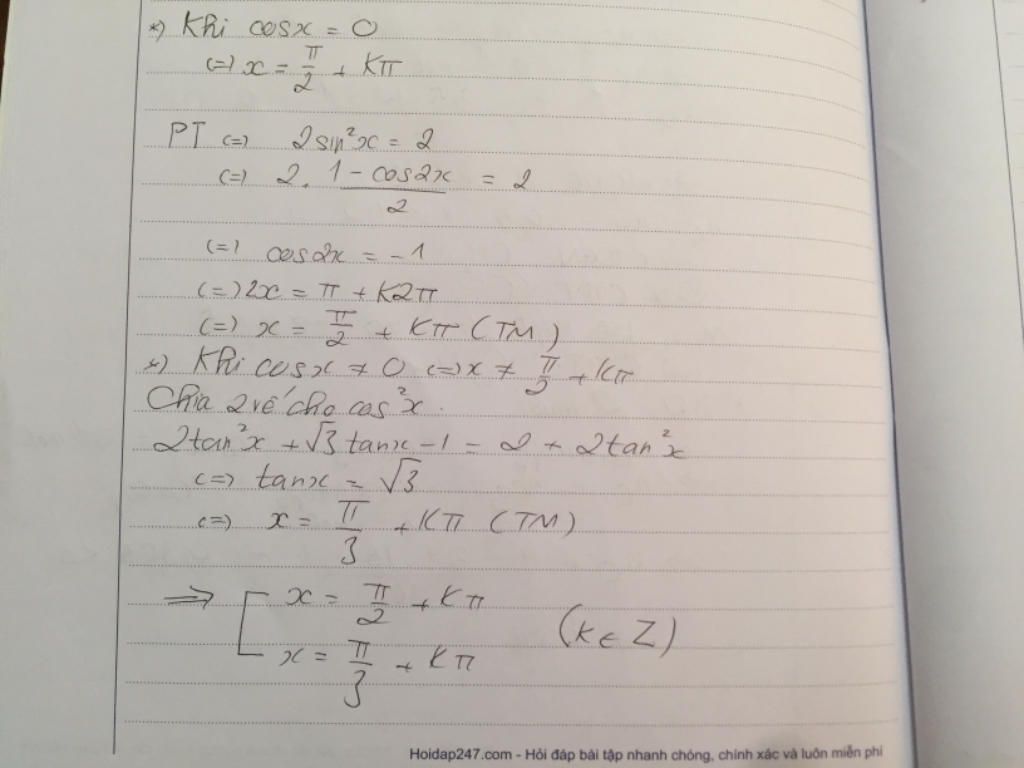 *) Khi cosx = 0
(=) x = π/2 + Kπ
PT (=) 2sin²x = 2
(=) 2. (1 - cos2x)/2 = 2
(=) cos2x = -1
(=) 2x = π + K2π
(=) x = π/2 + Kπ (TM)
*) Khi cosx ≠ 0 (=) x ≠ π/2 + Kπ
Chia 2 vế cho cos²x.
2tan²x + √3 tanx - 1 = 2 + 2tan²x
(=) tanx = √3
(=) x = π/3 + Kπ (TM)
=> [ x = π/2 + Kπ
x = π/3 + Kπ (K ∈ Z)
Hoidap247.com - Hỏi đáp bài tập nhanh chóng, chính xác và luôn miễn phí